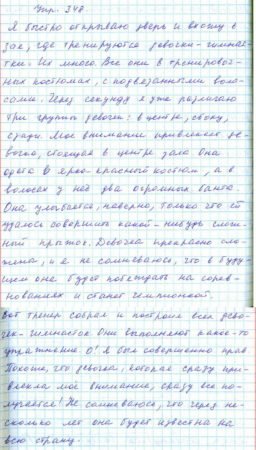 Упр. 348
Я быстро открываю дверь и вхожу в
зал, где тренируются девочки-гимнаст-
ки. Их много. Все они в тренировоч-
ных костюмах, с подвязанными воло-
сами. Через секунду я уже различаю
три группы девочек: в центре, сбоку,
сзади. Моё внимание привлекает де-
вочка, стоящая в центре зала. Она
одета в ярко-красный костюм, а в
волосах у неё два огромных банта.
Она улыбается, наверно, только что ей
удалось совершить какой-нибудь слож-
ный прыжок. Девочка прекрасно сло-
жена, и я не сомневаюсь, что в буду-
щем она будет побеждать на сорев-
нованиях и станет чемпионкой.
Вот тренер собрал и построил всех дево-
чек-гимнасток. Они выполняют какое-то
упражнение. О! Я был совершенно прав
Похоже, что девочка, которая сразу при-
влекла моё внимание, сразу все по-
лучается! Не сомневаюсь, что через не-
сколько лет она будет известна на
всю страну.